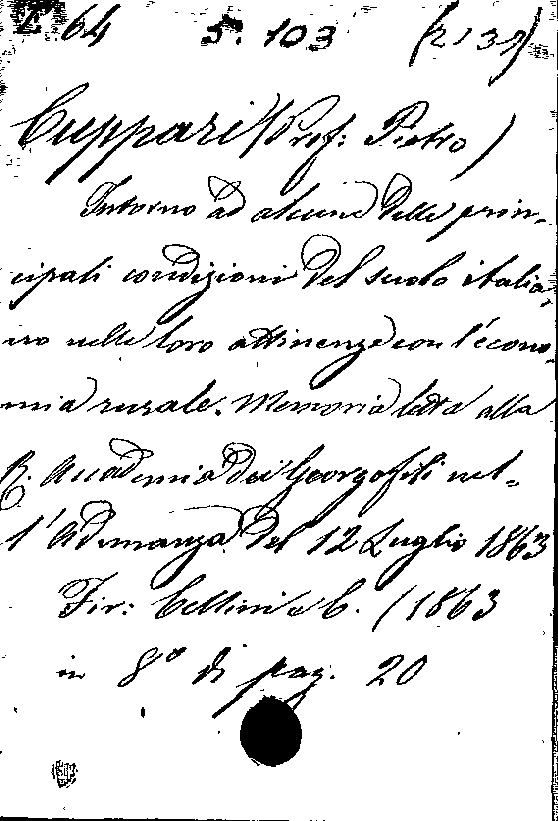 64 5. 103 (2139)
Cuppari (Prof: Pietro)
Intorno ad alcune delle prin-
cipali condizioni del suolo italia-
no nelle loro attinenze con l'econo-
mia rurale. Memoria letta alla
R. Accademia dei Georgofili nel-
l'Adunanza del 12 Luglio 1863
Fir: Cellini e C. (1863
in 8º di pag. 20